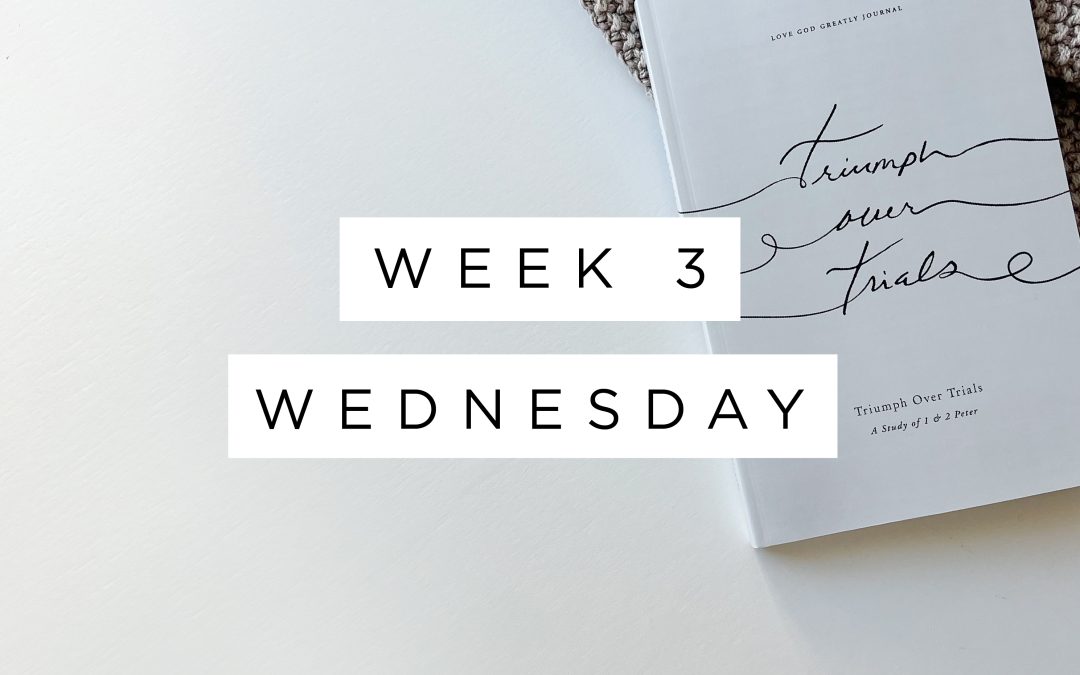 LOVE GOD GREATLY JOURNAL
Triumph
over
Trials
WEEK 3
WEDNESDAY
Triumph Over Trials
A Study of 1 & 2 Peter